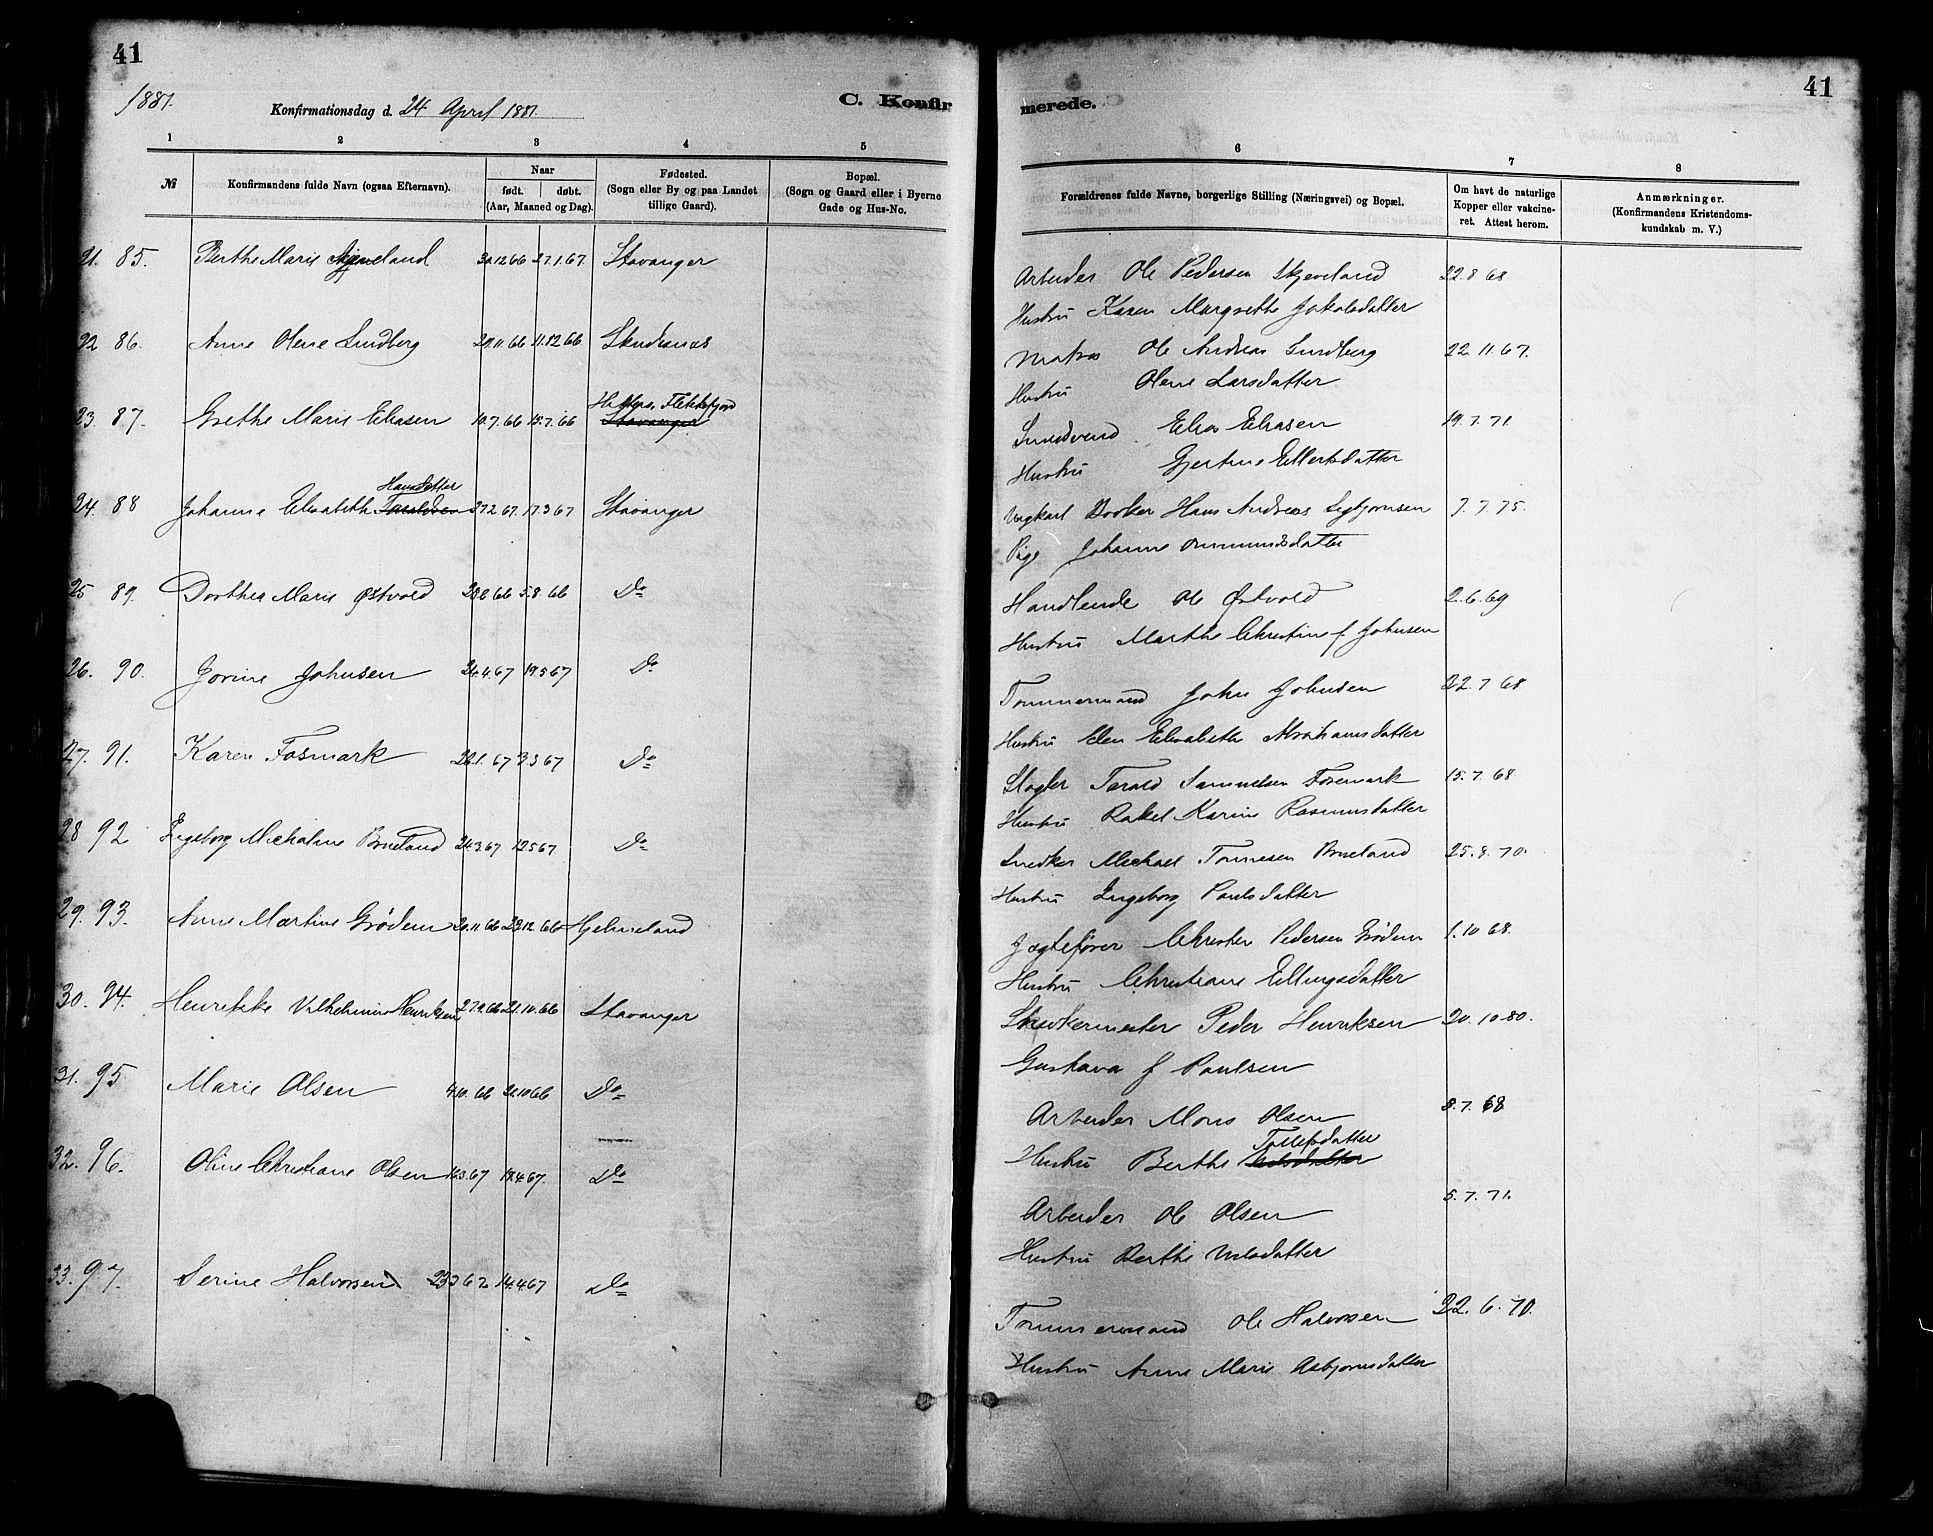 41
1881.
Konfirmationsdag d. 24 April 1881.
C. Konfir
1 2 3 4 5
№
Konfirmandens fulde Navn (ogsaa Efternavn).
Naar
født. døbt.
(Aar, Maaned og Dag).
Fødested.
(Sogn eller By og paa Landet
tillige Gaard).
Bopæl.
(Sogn og Gaard eller i Byerne
Gade og Hus-No.
21. 85. Berthe Marie Skjeveland 30.12 66 27.1.67. Stavanger
22 86. Anne Olene Lundberg 11.12 66 Skudesnæs
Hitterø, Flekkefjord
23. 87. Grethe Marie Eliasen 10.7.66 15.7.66 Stavanger
Hansdatter
24. 88 Johanne Elisabeth 17.3 67 Stavanger
25 89. Dorthea Marie Østvold 5.8.66 Do
26. 90. Jorine Johnsen 24.4.67 19.5 67 Do
27. 91. Karen Fosmark 22.1.67 3.3 67 Do
28 92 Ingeborg Michaline Brueland 24.3.67 12.5 67 Do
29. 93. Anne Martine Grødem 20.11 66 23.12.66 Hjelmeland
30. 94. Henrikke Vilhelmine Henriksen 27.9.66 21.10.66 Stavanger
31. 95 Marie Olsen 4.10.66 21.10 66 Do
32. 96. Oline Christiane Olsen 16.3.67 14.4.67. Do
33. 97. Serine Halvorsen 14.4.67 Do
41
merede.
6 7 8
Forældrenes fulde Navne, borgerlige Stilling (Næringsvei) og Bopæl.
Om havt de naturlige
Kopper eller vakcine-
ret. Attest herom.
Anmærkninger.
(Konfirmandens Kristendoms-
kundskab m. V.)
Arbeider Ole Pedersen Skjeveland 22.8 68
Hustru Karen Margrethe Jakobsdatter
Matros Ole Andreas Lundberg 22.11.67.
Hustru Olene Larsdatter
Elias Eliasen 19.7.71.
Hustru Gjertine Ellertsdatter
Ungkarl Hans Andreas 7.7.75.
Pige Johanne Ommundsdatter
Handlende Ole Østvold 2.6.69
Hustru Marthe Christine f. Johnsen
Tømmermand John Johnsen 22.7 68
Hustru Elen Elisabeth Abrahamsdatter
Slagter Tarald Samuelsen Fosmark 15.7.68.
Hustru Rakel Karine Rasmusdatter
Snedker Michael Tønnesen Brueland 25.8.70.
Hustru Ingeborg Paulsdatter
Jagtefører Christen Pedersen Grødem 1.10 68.
Hustru Christiane Ellingsdatter
Snedkermester Peder Henriksen 20.10 80.
Gustava f Paulsen
Arbeider Mons Olsen 8.7.68
Tollefsdatter
Hustru Berthe
Arbeider Ole Olsen 5.7.71.
Hustru Berthe Nilsdatter
Tømmermand Ole Halvorsen 22.6.70.
Hustru Anne Marie Asbjørnsdatter